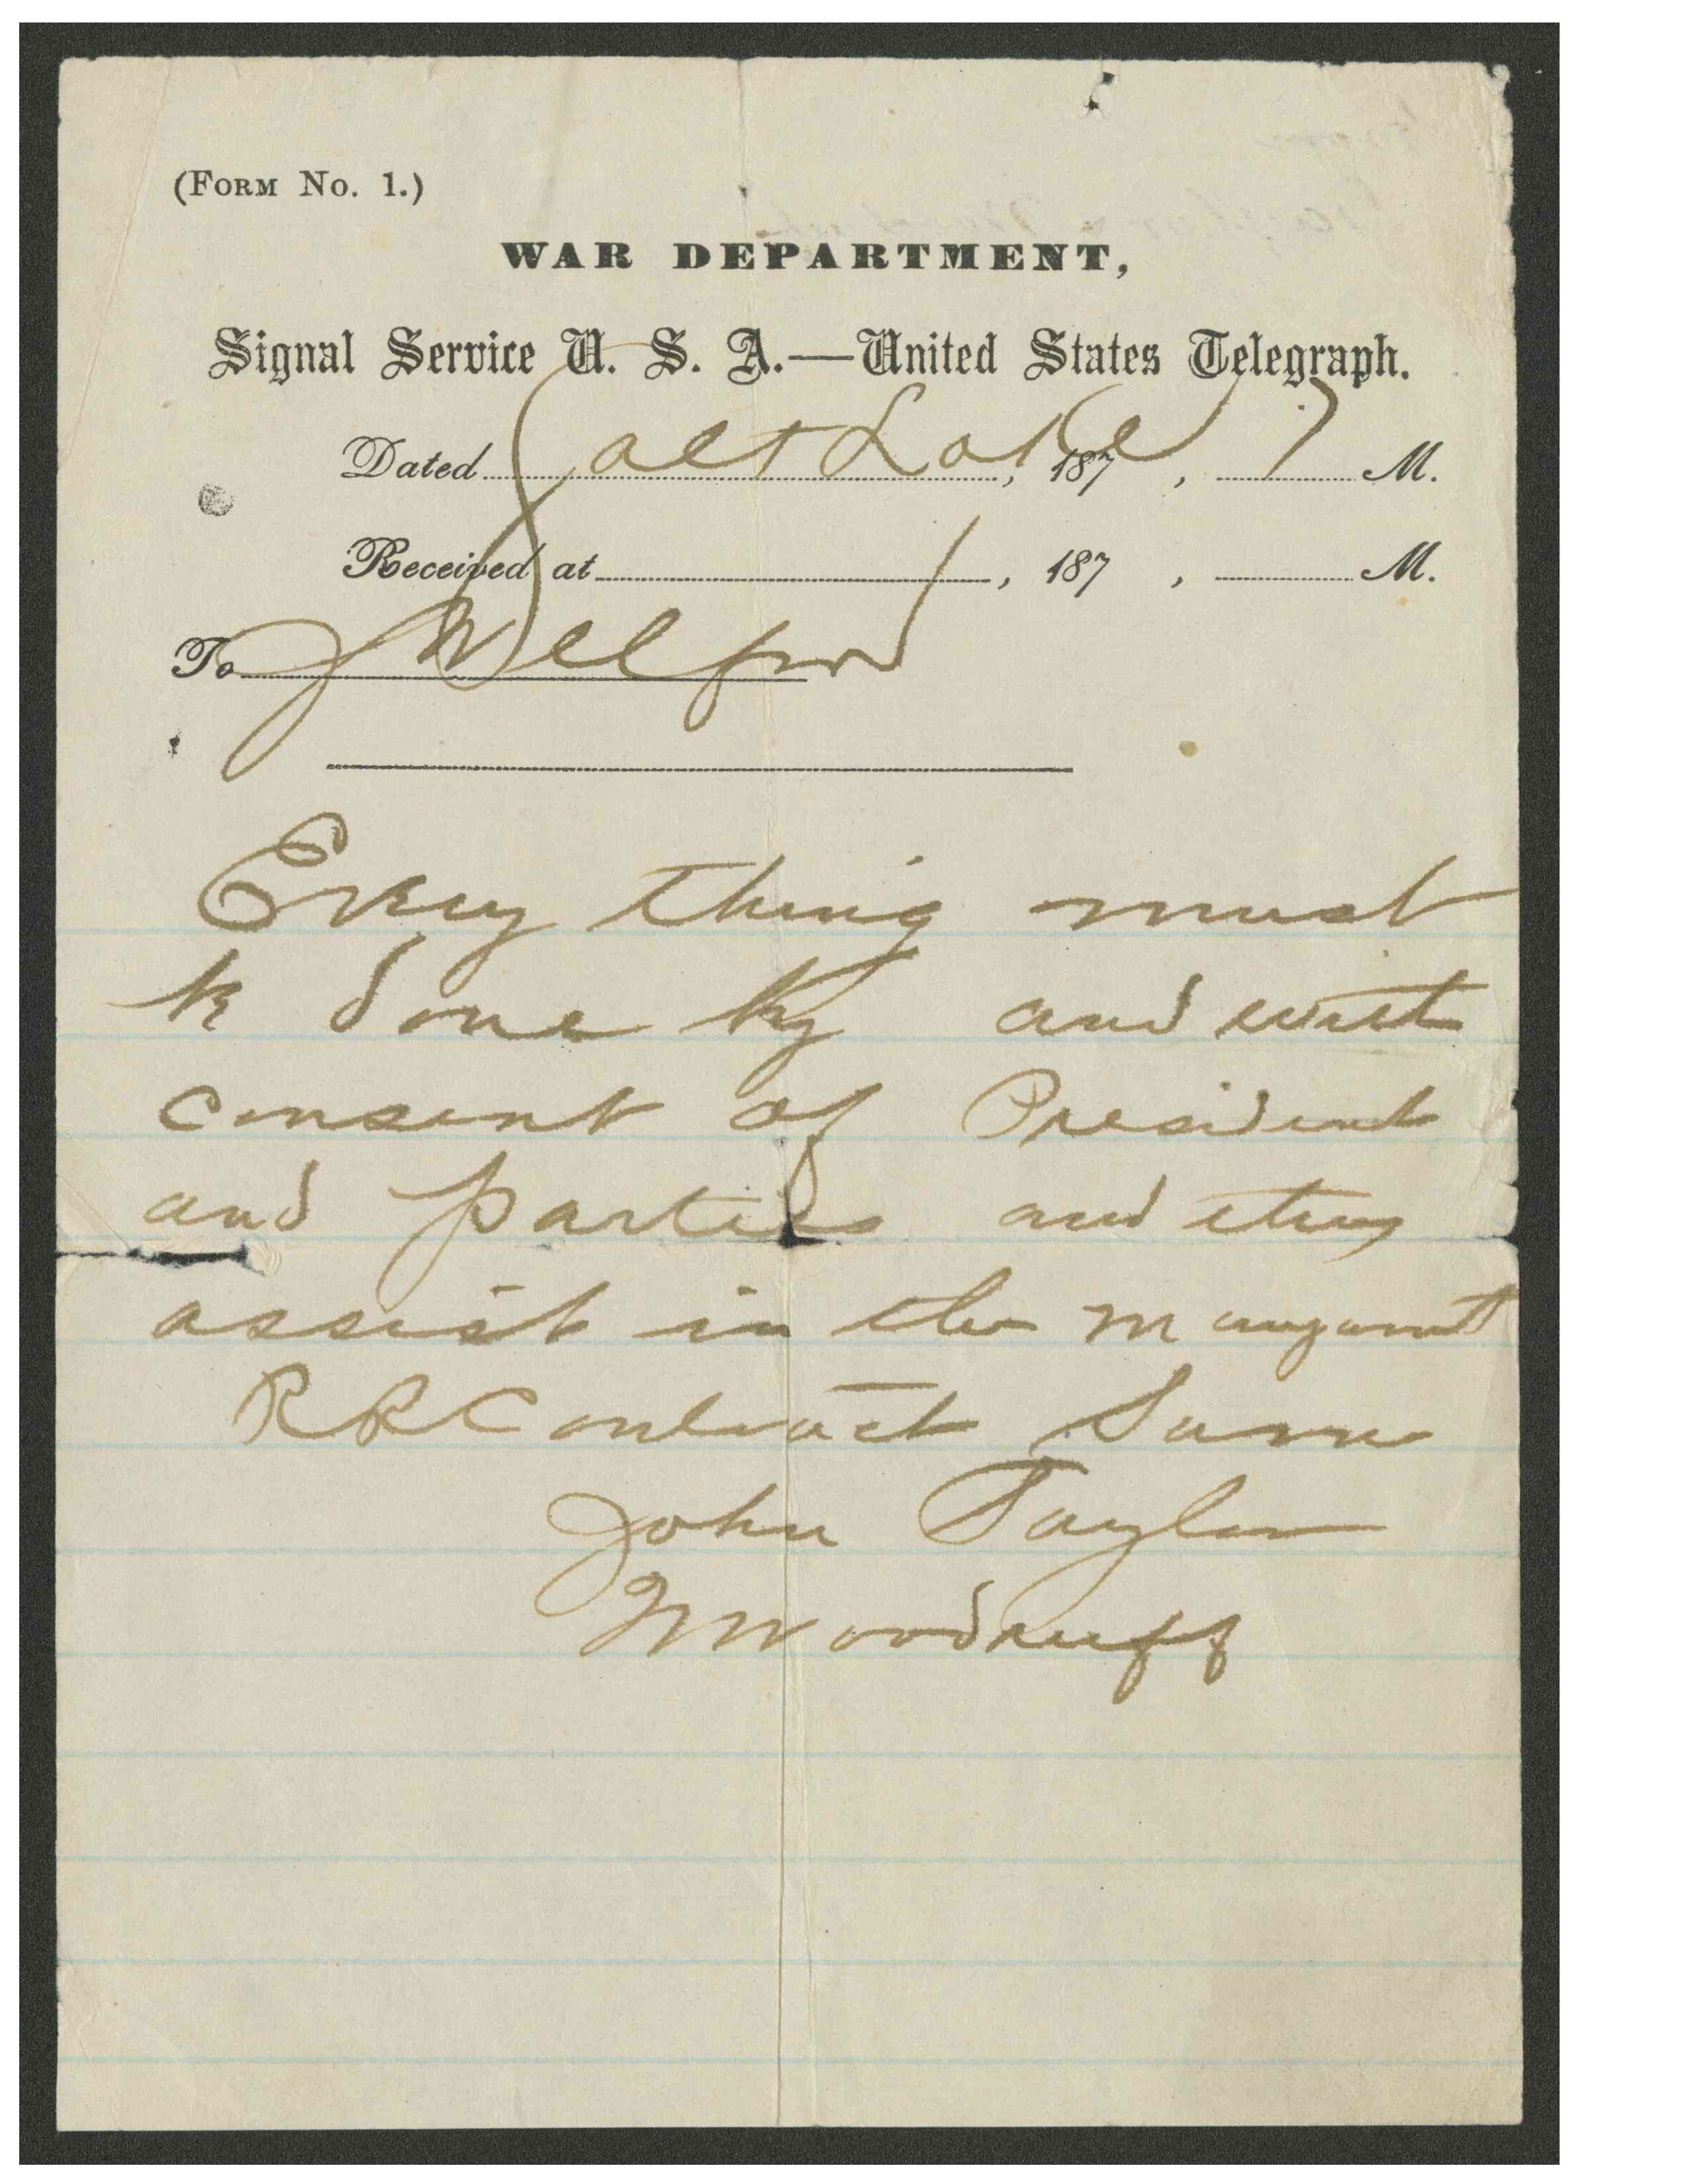 (FORM No. 1.)
WAR DEPARTMENT,
Signal Service U. S. A.—United States Telegraph.
Dated Salt Lake 7, 187 , M.
Received at , 187 , M.
To J W
Every thing must
be done by and with
consent of President
and parties and they
assist in the
R R Contract Same
John Taylor
W Woodruff